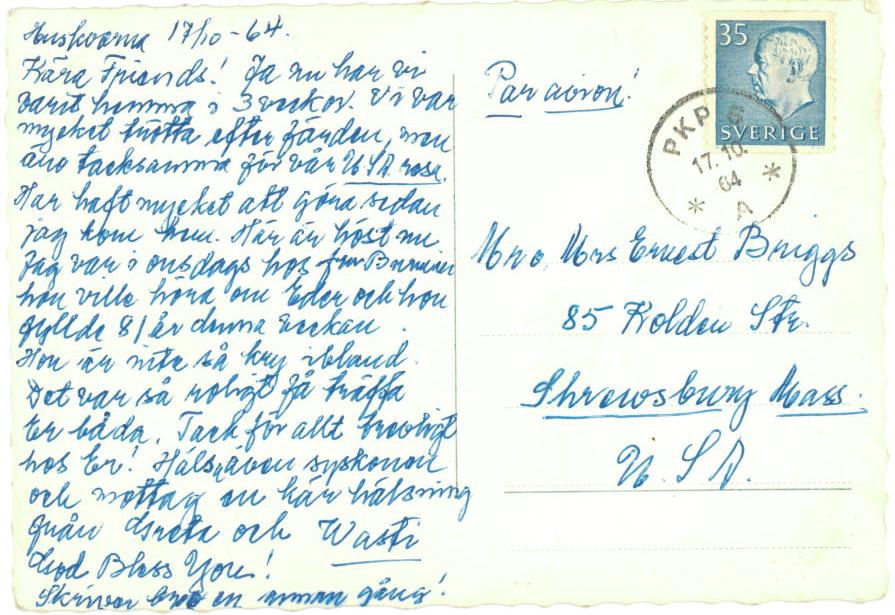 Huskvarna 17/10-64.
Kära Friends! Ja nu har vi
varit hemma i 3 veckor. Vi var
mycket trötta efter färden, men
äro tacksamma för vår USA resa.
Har haft mycket att göra sedan
jag kom hem. Här är höst nu
Jag var i onsdags hos fru
hon ville höra om Eder och hon
fyllde 81 år denna veckan.
Hon är inte så kry ibland.
Det var så roligt få träffa
Er båda. Tack för allt trevligt
hos Er! Hälsa även syskonen
och mottag en kär hälsning
från Greta och Wasti
God Bless You!
Skriver brev en annan gång!
Par avion!
35
SVERIGE
PKP
17.10.
64
* A *
Mr o. Mrs Ernest Briggs
85 Kolden Str.
Shrewsbury Mass.
U.S.A.